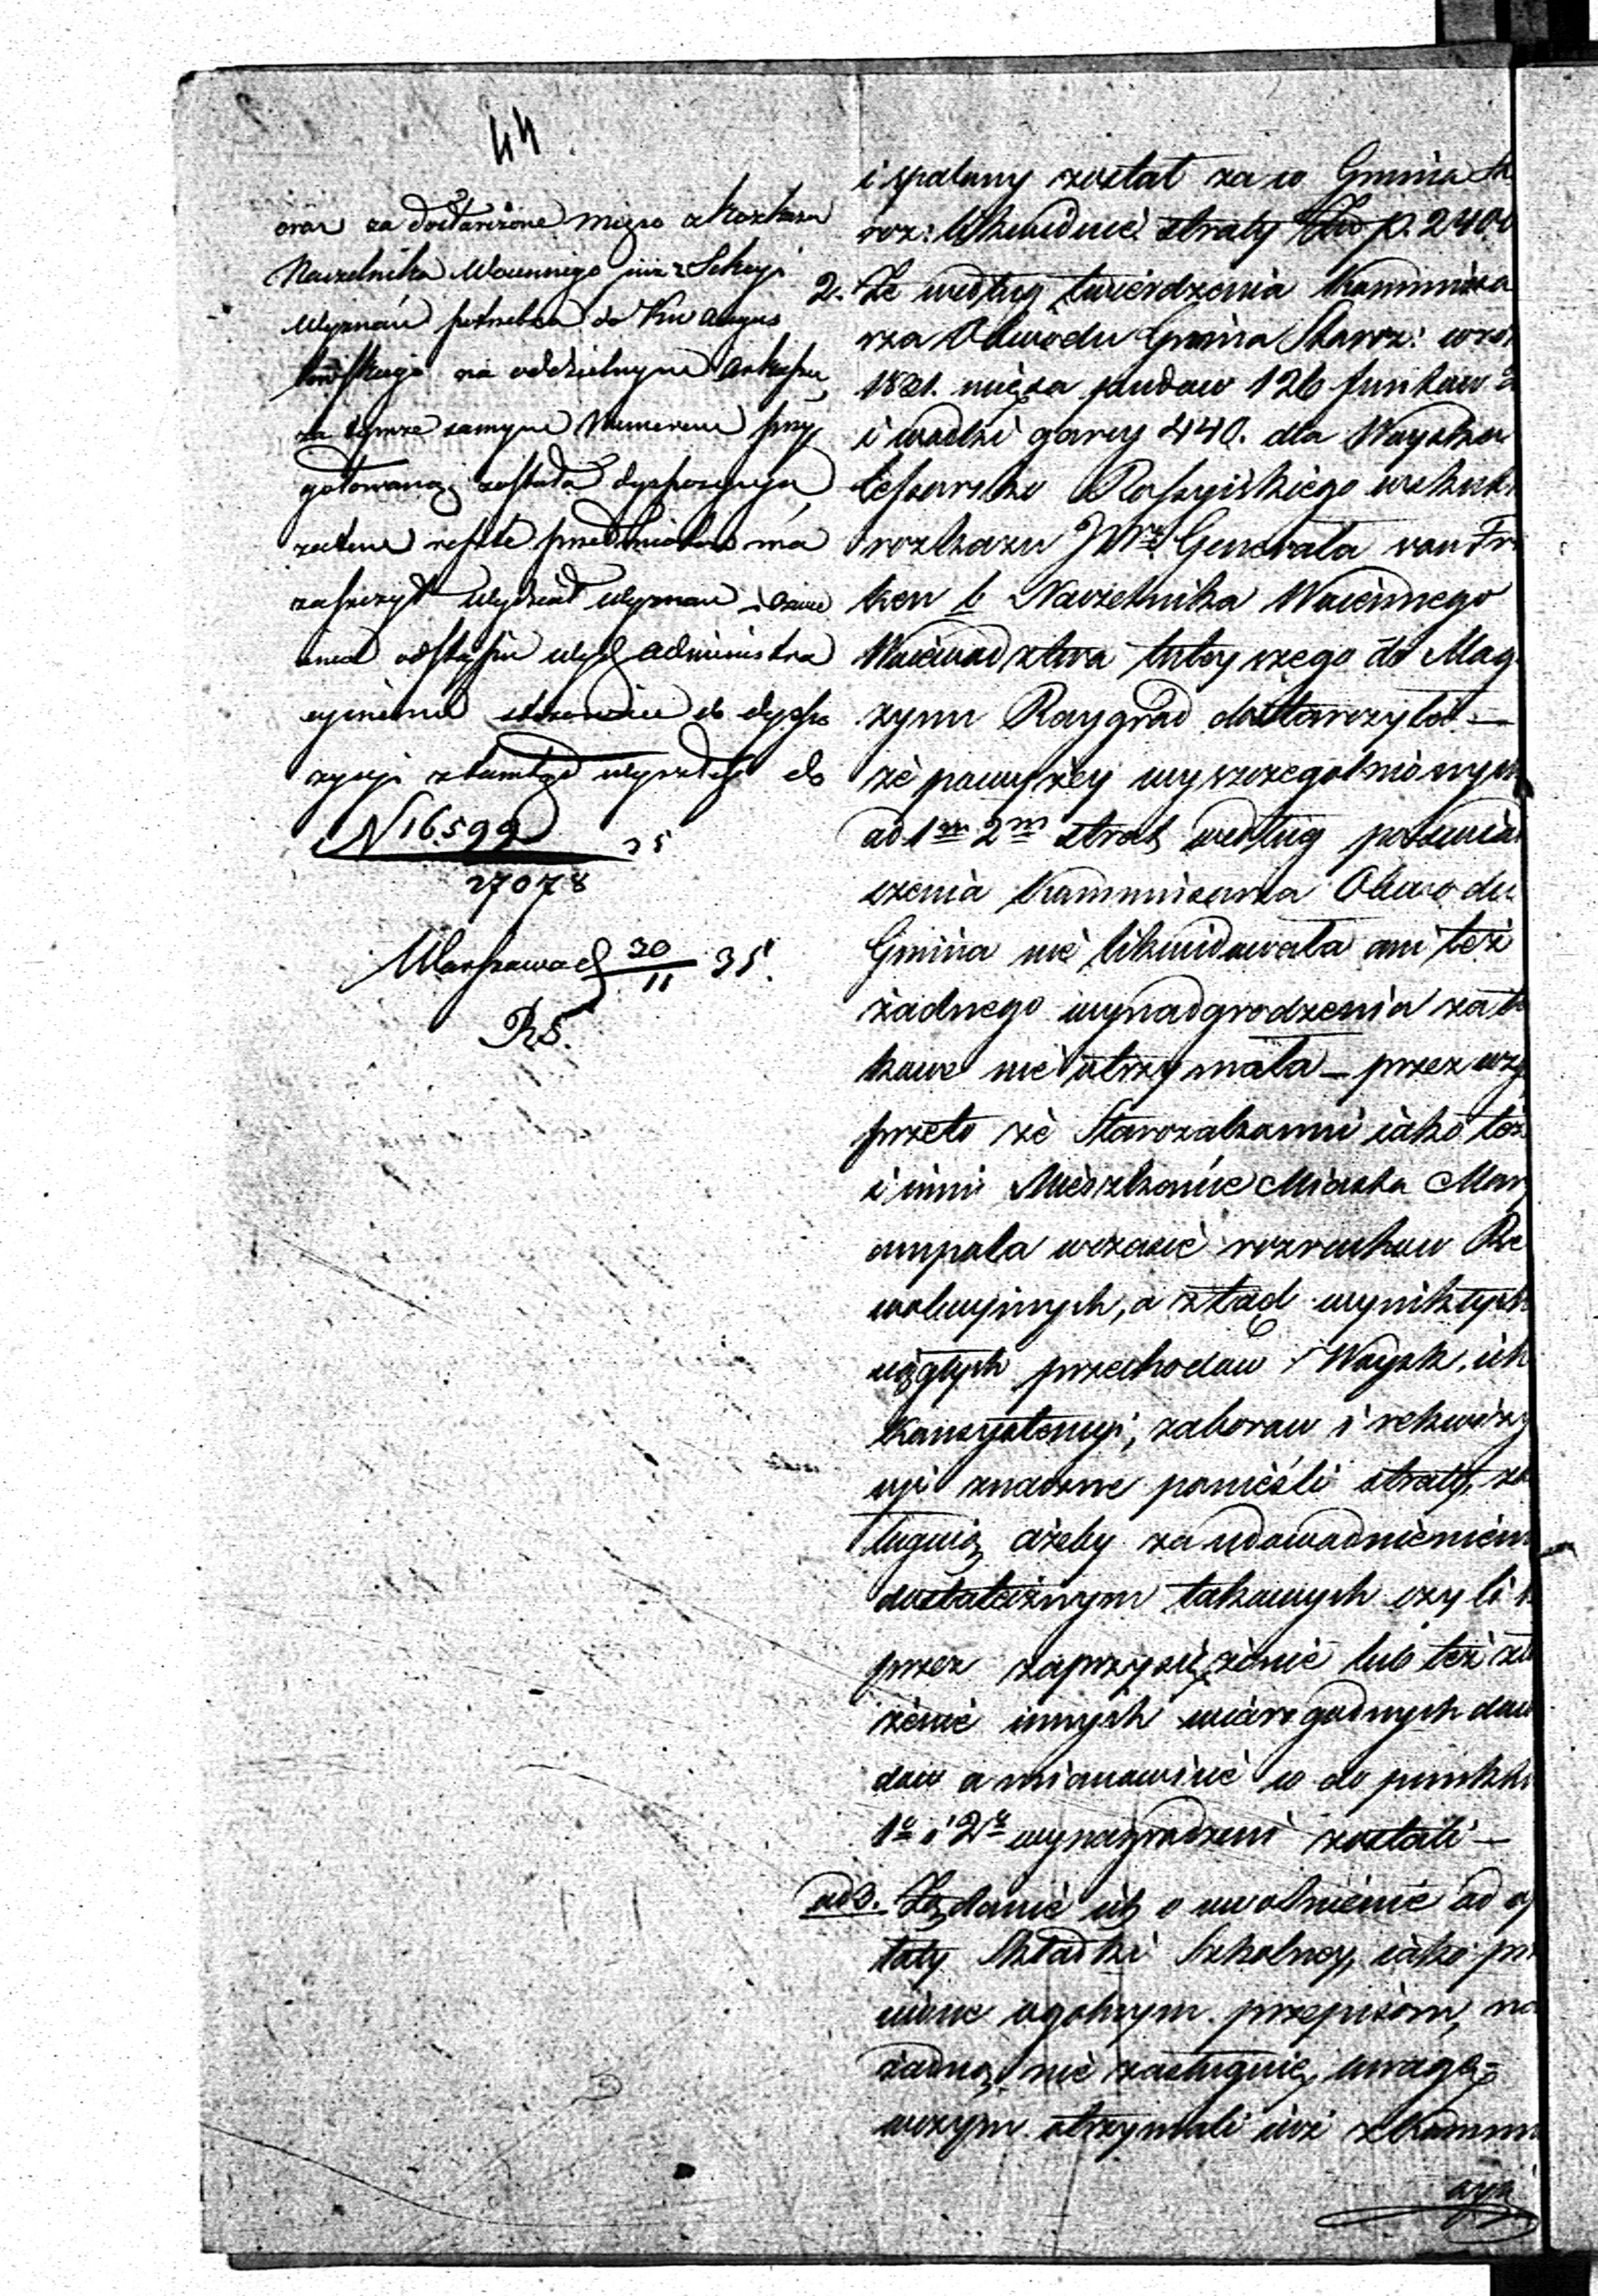 44
oraz za dostarczone mięso z rozkazu
Naczelnika Woiennego iuż z Sekcyi
Wyznań potrzeba do Kw Augus
towskiego na oddzielnym arkuszu
za tymże samym Numerem przy
gotowaną została dyspozycya,
zatem resztę przedmiotu ma
zaszczyt Wydział Wyznań
odstąpić Wydz administra
cyinemu do dyspo
zycyi z tamtąd wyszłey do
N 16599
35
27078
Warszawa d 30/11 35.
RS.
i spalony został za co Gmina St
roz: likwiduie straty Złp. 2400
2. Że według twierdzenia Kommissa
rza Obwodu Gmina Staroz: w ro
1831. mięsa pudow 126 funtow
i wodki garcy 440. dla Woyska
Cesarsko Rossyiskiego wskutk
rozkazu JWº Generała van Fri
ken b Naczelnika Woiennego
Woiewodztwa tuteyszego do Mag
zynu Raygrod dostarczyła —
że powyżey wyszczegolnionym
ad 1m 2m strat według poswia
czenia Kommissarza Obwodu
Gmina nie likwidowała ani też
żadnego wynadgrodzenia za ta
kowe nie otrzymała — przez wzg
przeto że Starozakonni iako też
i inni Mieszkańce Miasta Mary
ampola w czasie rozruchow Re
wolucyinych, a ztąd wynikłych
ciągłych przechodow Woysk, ich
Konsystencyi, zaborow i rekwizy
cyi znaczne ponieśli straty, za
ługuią ażeby za udowodnieniem
dostatecznym takowych czyli
przez zaprzysiężenie lub też zło
żenie innych wiarogodnych dowo
dow a mianowicie co do punktu
1º i 2º wynagrodzeni zostali —
ad 3. Żądanie ich o uwolnienie od op
łaty Składki Szkolney, iako prze
ciwne ogolnym przepisom, na
żadną nie zasługuie uwagę —
w czym otrzymali iuż z Kommi
syi